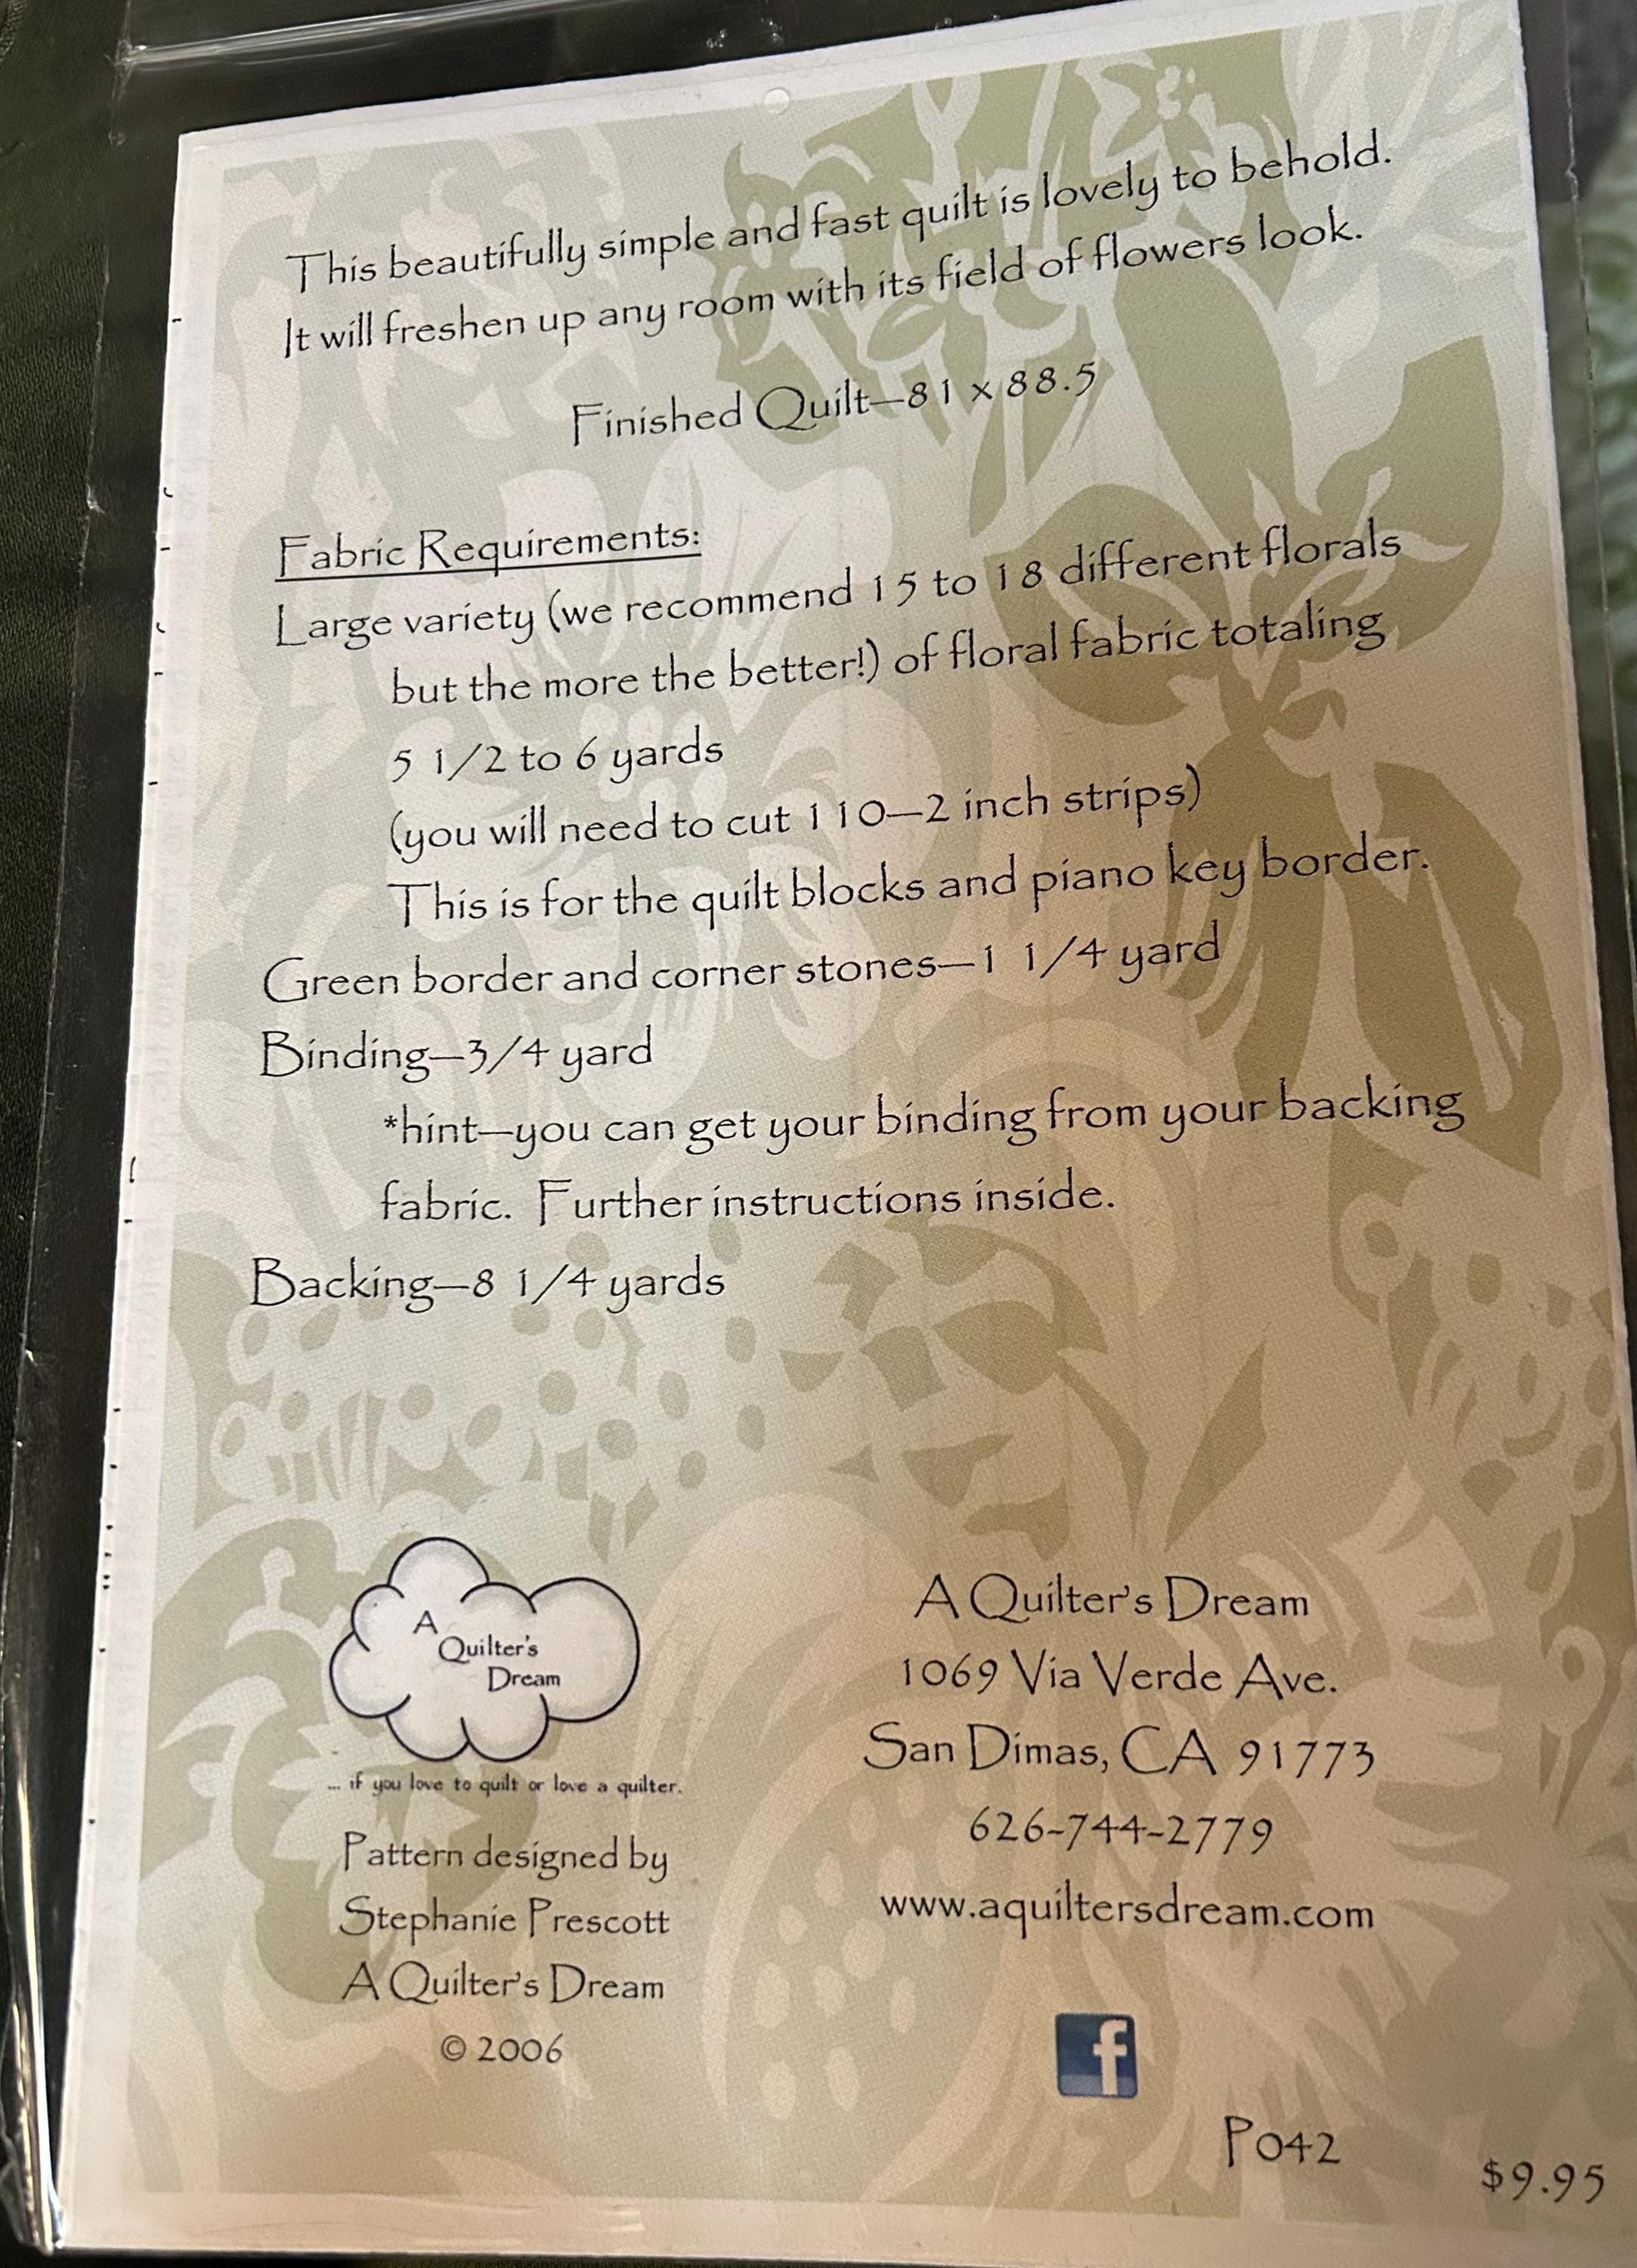 This beautifully simple and fast quilt is lovely to behold.
It will freshen up any room with its field of flowers look.
Finished Quilt—81 x 88.5
Fabric Requirements:
Large variety (we recommend 15 to 18 different florals
but the more the better!) of floral fabric totaling
5 1/2 to 6 yards
(you will need to cut 110—2 inch strips)
This is for the quilt blocks and piano key border.
Green border and corner stones—1 1/4 yard
Binding—3/4 yard
*hint—you can get your binding from your backing
fabric. Further instructions inside.
Backing—8 1/4 yards
A
Quilter's
Dream
... if you love to quilt or love a quilter.
Pattern designed by
Stephanie Prescott
A Quilter's Dream
© 2006
A Quilter's Dream
1069 Via Verde Ave.
San Dimas, CA 91773
626-744-2779
www.aquiltersdream.com
f
P042
$9.95